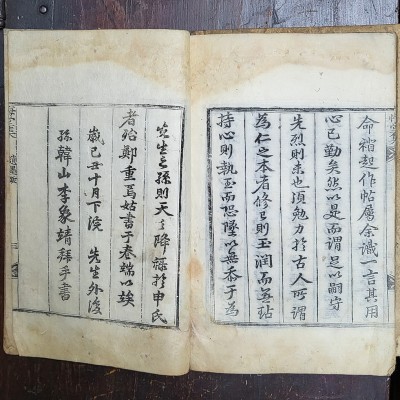 命褙起作帖屬余識一言其用
心已勤矣然以是而謂足以嗣守
先烈則未也須勉力於古人所謂
為仁之本者修己則玉潤而無玷
持心則執玉而恐墜以無忝于為
先生之孫則天之降祿於申氏
者殆鄭重焉姑書于卷端以竢
歲己丑十月下浣 先生外後
孫韓山李象靖拜手書